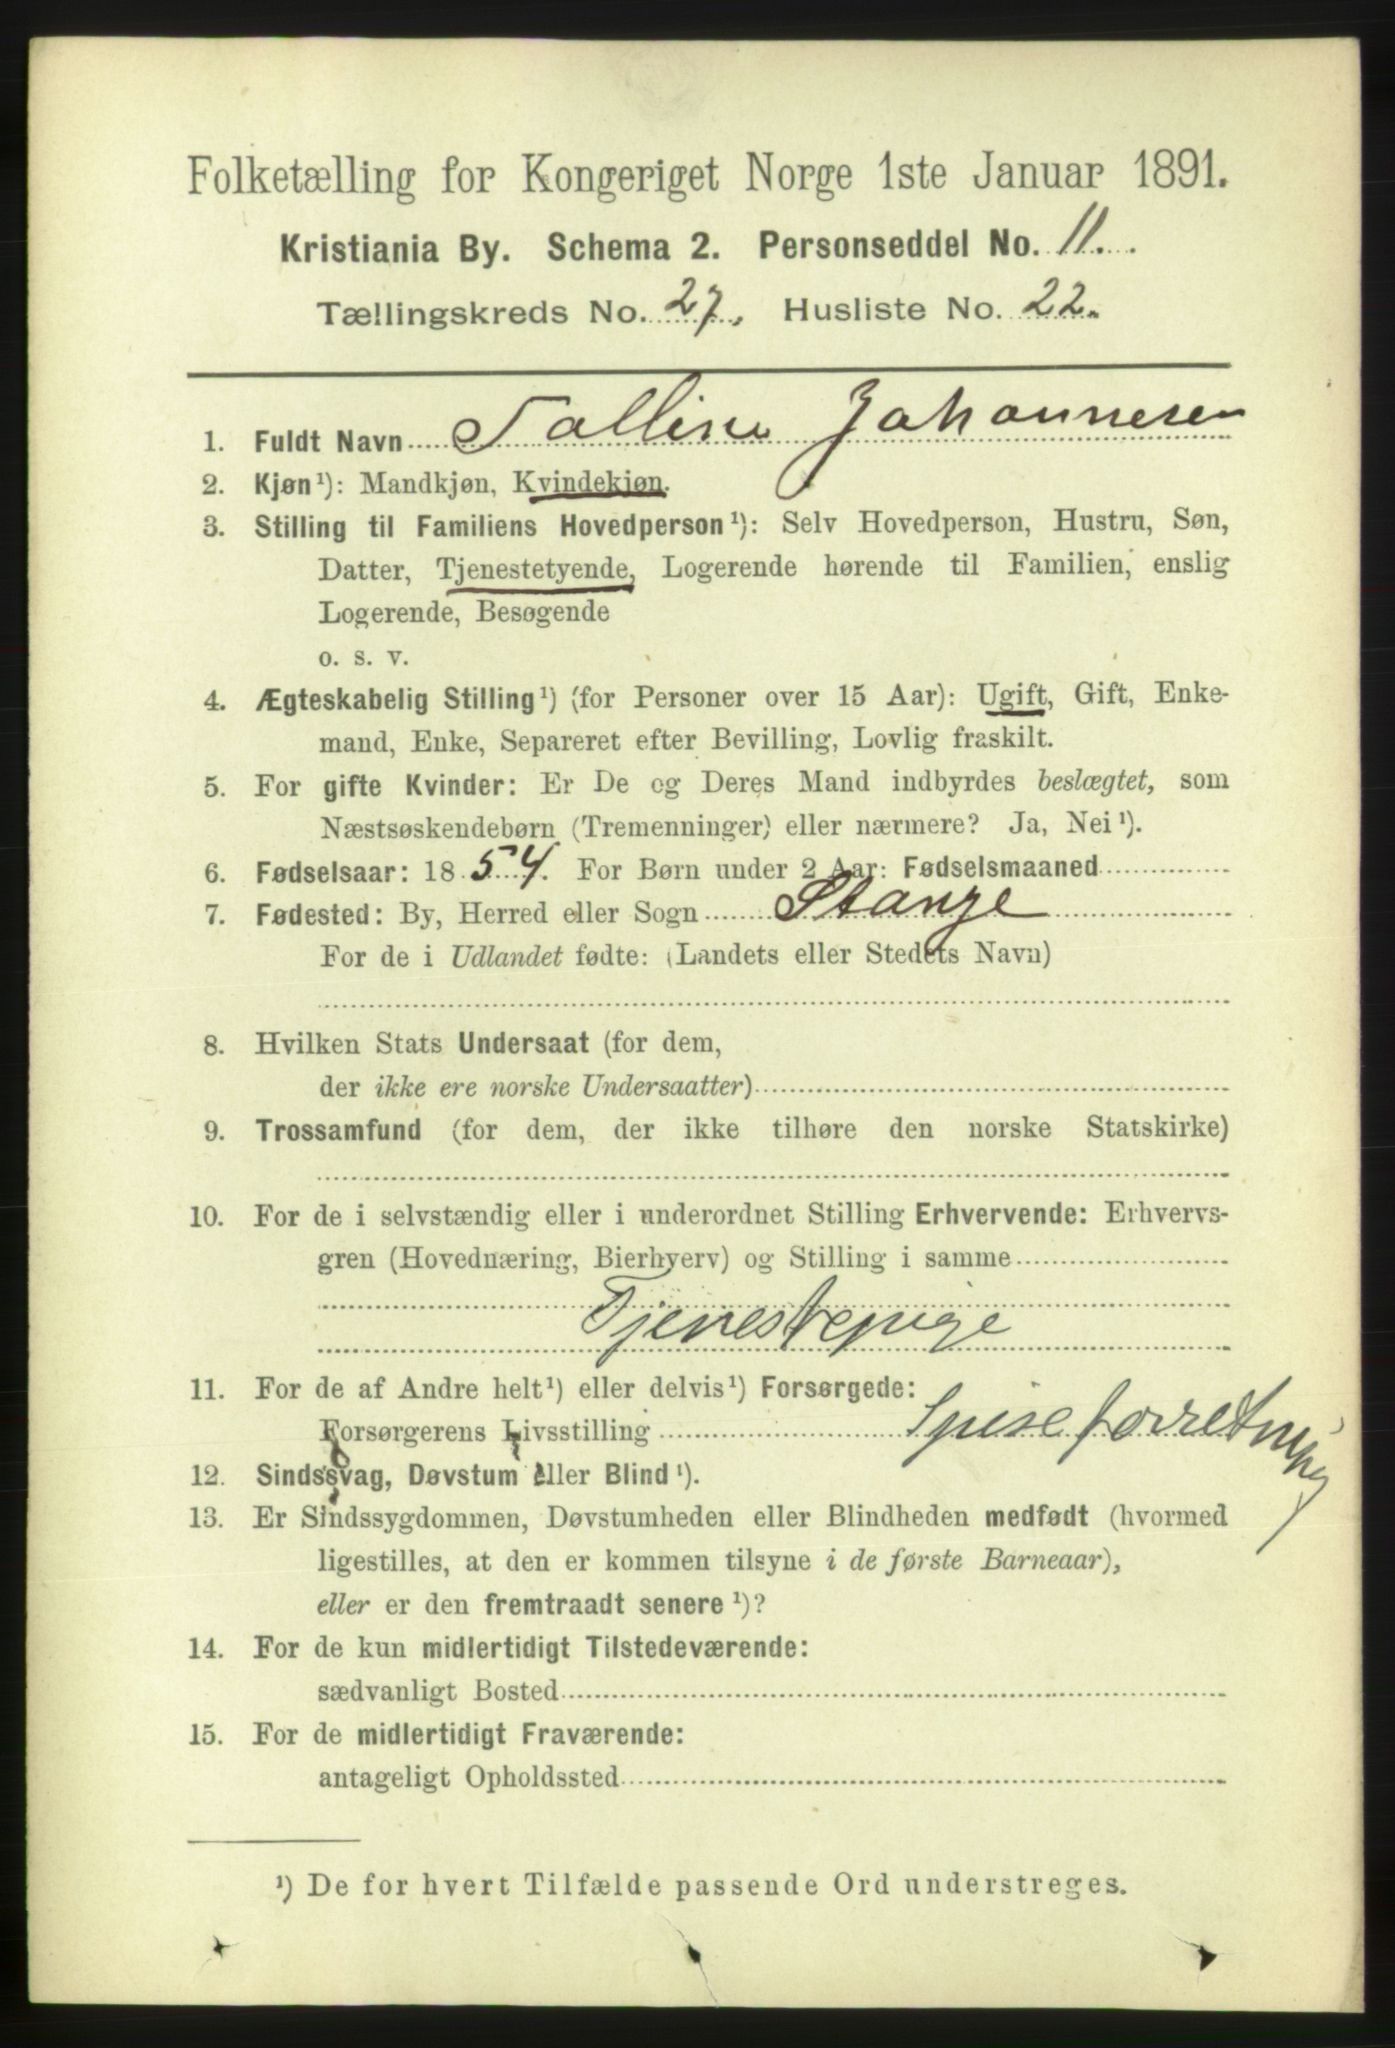 Folketælling for Kongeriget Norge 1ste Januar 1891.
Kristiania By. Schema 2. Personseddel No. 11.
Tællingskreds No. 27. Husliste No. 22.
1. Fuldt Navn Talline Johannesen
2. Kjøn¹): Mandkjøn, Kvindekjøn.
3. Stilling til Familiens Hovedperson¹): Selv Hovedperson, Hustru, Søn,
Datter, Tjenestetyende, Logerende hørende til Familien, enslig
Logerende, Besøgende
o. s. v.
4. Ægteskabelig Stilling¹) (for Personer over 15 Aar): Ugift, Gift, Enke-
mand, Enke, Separeret efter Bevilling, Lovlig fraskilt.
5. For gifte Kvinder: Er De og Deres Mand indbyrdes beslægtet, som
Næstsøskendebørn (Tremenninger) eller nærmere? Ja, Nei¹).
6. Fødselsaar: 1854. For Børn under 2 Aar: Fødselsmaaned
7. Fødested: By, Herred eller Sogn Stange
For de i Udlandet fødte: (Landets eller Stedets Navn)
8. Hvilken Stats Undersaat (for dem,
der ikke ere norske Undersaatter)
9. Trossamfund (for dem, der ikke tilhøre den norske Statskirke)
10. For de i selvstændig eller i underordnet Stilling Erhvervende: Erhvervs-
gren (Hovednæring, Bierhverv) og Stilling i samme
Tjenestepige
11. For de af Andre helt¹) eller delvis¹) Forsørgede:
Forsørgerens Livsstilling Spiseforretning
12. Sindssvag, Døvstum eller Blind¹).
13. Er Sindssygdommen, Døvstumheden eller Blindheden medfødt (hvormed
ligestilles, at den er kommen tilsyne i de første Barneaar),
eller er den fremtraadt senere¹)?
14. For de kun midlertidigt Tilstedeværende:
sædvanligt Bosted
15. For de midlertidigt Fraværende:
antageligt Opholdssted
¹) De for hvert Tilfælde passende Ord understreges.